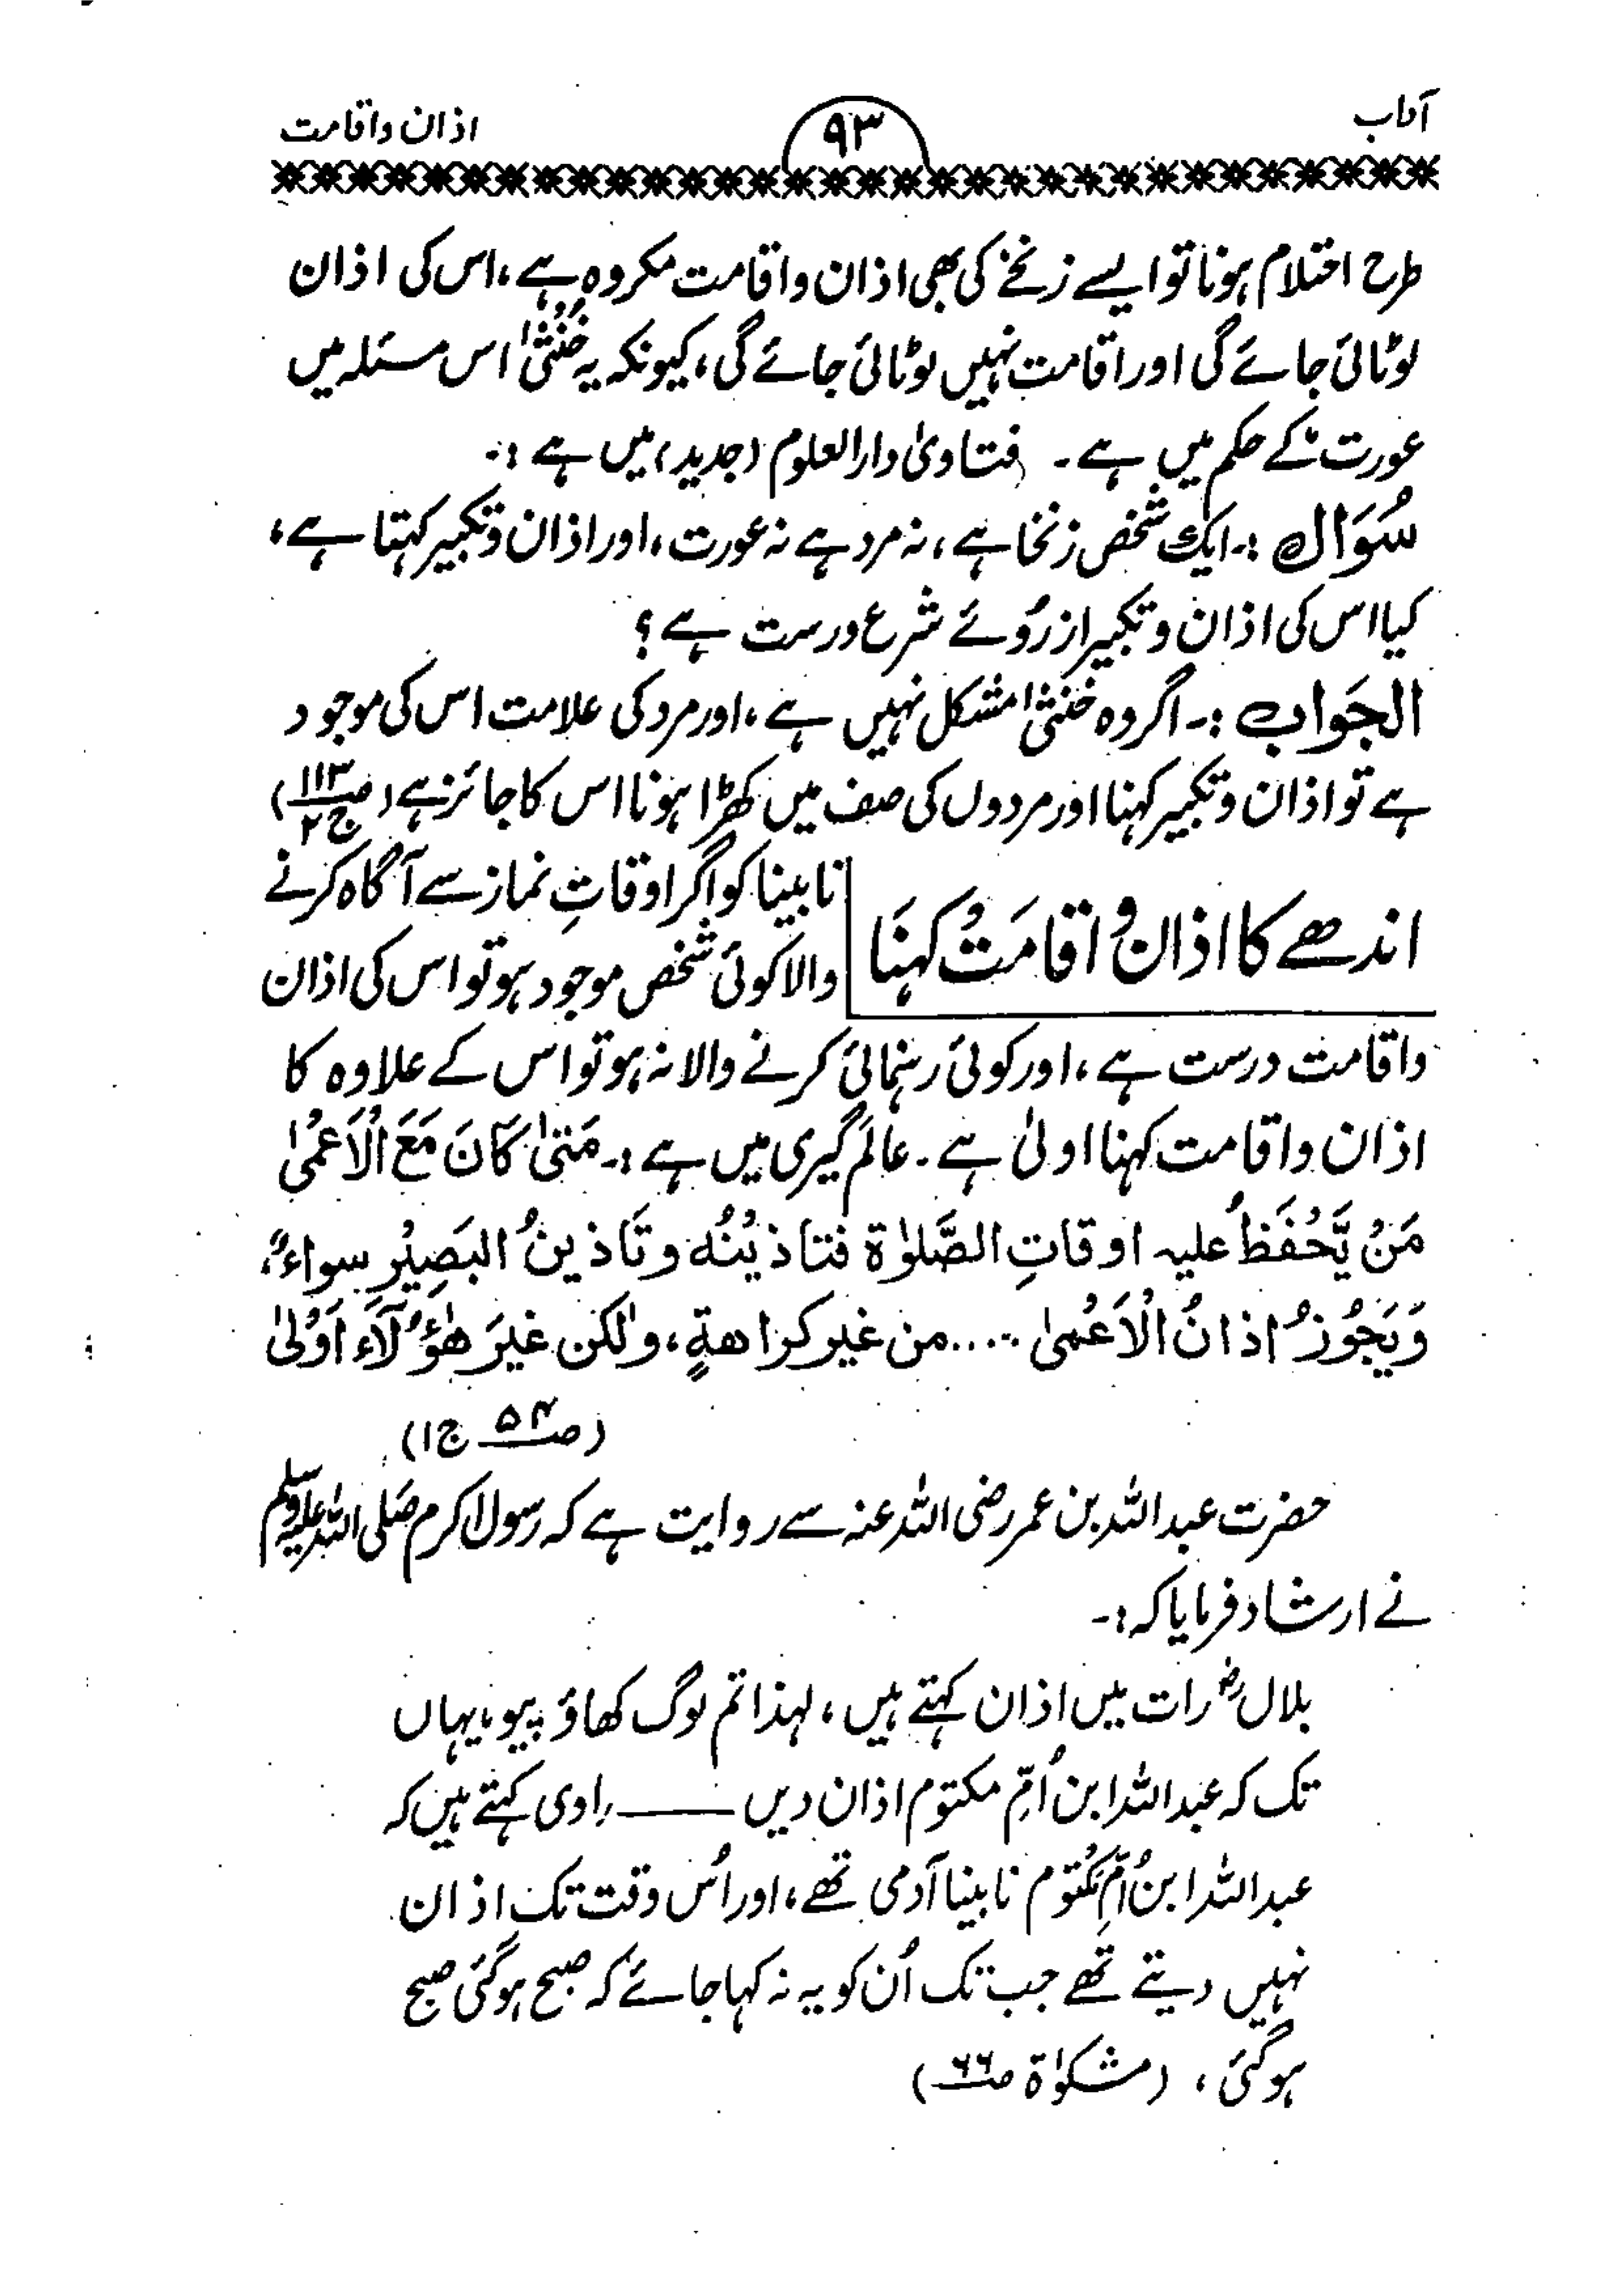 آداب
۹۳
اذان واقامت
طرح احتلام ہونا تو ایسے زنخے کی بھی اذان واقامت مکروہ ہے، اس کی اذان
لوٹائی جائے گی اور اقامت نہیں لوٹائی جائے گی، کیونکہ یہ خُنثیٰ اس مسئلہ میں
عورت کے حکم میں ہے۔ فتاویٰ دارالعلوم (جدید) میں ہے :۔
سُوَال :۔ ایک شخص زنخا ہے، نہ مرد ہے نہ عورت، اور اذان وتکبیر کہتا ہے،
کیا اس کی اذان وتکبیر از رُوئے شرع درست ہے؟
الجَواب :۔ اگر وہ خنثیٰ مشکل نہیں ہے، اور مرد کی علامت اس کی موجود
ہے تو اذان وتکبیر کہنا اور مردوں کی صف میں کھڑا ہونا اس کا جائز ہے (ص۱۱۳ ج۲)
اندھے کا اذان و اقامَت کہنَا
نابینا کو اگر اوقاتِ نماز سے آگاہ کرنے
والا کوئی شخص موجود ہو تو اس کی اذان
واقامت درست ہے، اور کوئی رہنمائی کرنے والا نہ ہو تو اس کے علاوہ کا
اذان واقامت کہنا اولیٰ ہے۔ عالمَ گیری میں ہے :۔ مَتیٰ کَانَ مَعَ الْاَعْمیٰ
مَنْ یَّحْفَظُ علیہ اوقاتِ الصَّلوٰۃ فتاذیْنُہ وتَاذینُ البَصِیْرِ سواءٌ،
وَیَجُوْزُ اذانُ الْاَعْمیٰ .....من غیر کراھۃٍ، ولٰکن غیرَ ھٰؤُلَآءِ اَوْلیٰ
(ص۵۴ ج۱)
حضرت عبداللہ بن عمر رضی اللہ عنہ سے روایت ہے کہ رسول اکرم صَلی اللہ علیہ وسلم
نے ارشاد فرمایا کہ :۔
بلالؓ رات میں اذان کہتے ہیں، لہذا تم لوگ کھاؤ پیو، یہاں
تک کہ عبداللہ ابن اُمِّ مکتوم اذان دیں ——— راوی کہتے ہیں کہ
عبداللہ ابن اُمِّ مکتوم نابینا آدمی تھے، اور اُس وقت تک اذان
نہیں دیتے تھے جب تک اُن کو یہ نہ کہا جائے کہ صبح ہوگئی صبح
ہوگئی، (مشکوٰۃ ص۶۶)